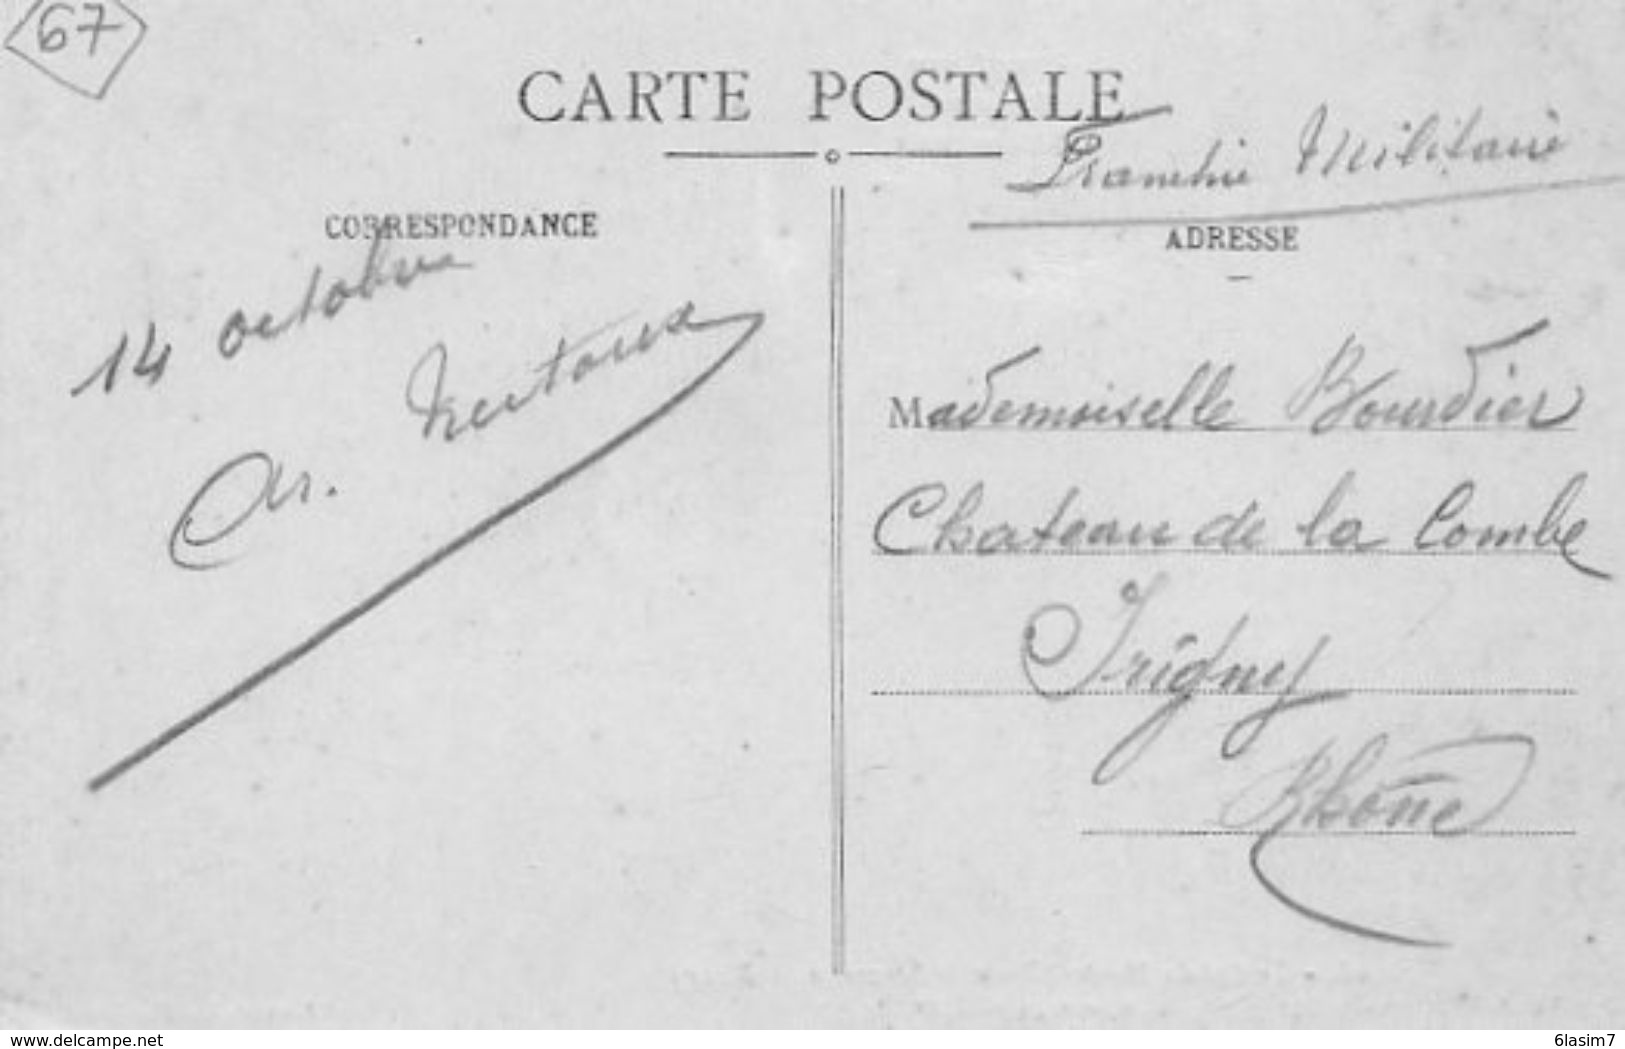 67
CARTE POSTALE
Franchie Militaire
CORRESPONDANCE
14 octobre
ADRESSE
Mademoiselle Bourdier
Chateau de la Combe
Irigny
Rhône
www.delcampe.net
6lasim7